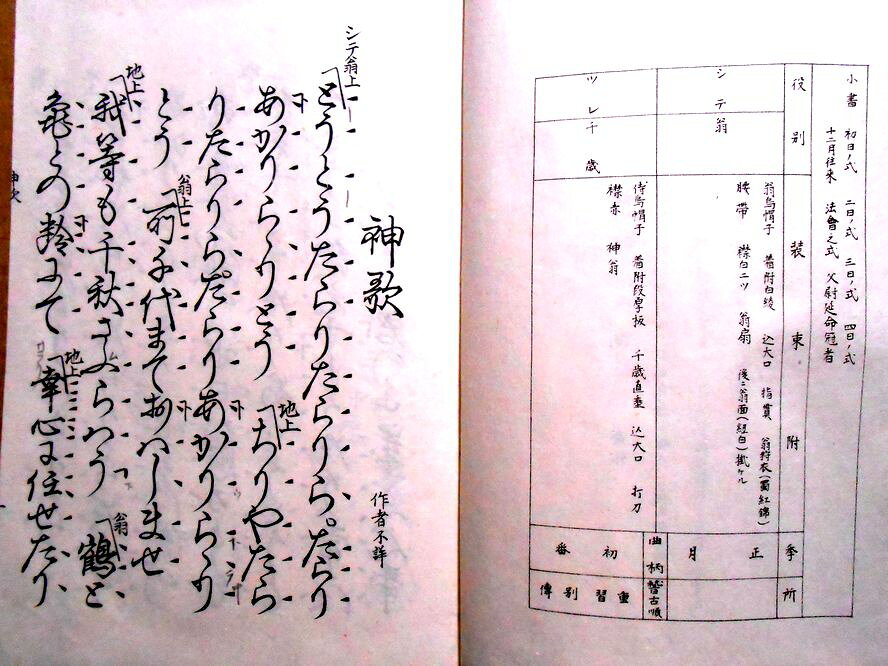 小書 初日ノ式 二日ノ式 三日ノ式 四日ノ式
十二月往来 法會之式 父尉延命冠者
役別 装束附 季 所
シテ 翁 翁烏帽子 着附白綾 込大口 指貫 翁狩衣(蜀紅錦)
腰帯 襟白二ツ 翁扇 後ニ翁面(紐白)掛ケル
正月
ツレ 千歳 侍烏帽子 着附段厚板 千歳直垂 込大口 打刀
襟赤 神扇
曲柄 稽古順
初番 重習別傳
神歌
作者不詳
シテ翁上
とうとうたらりたらりら。たらり
あがりらゝりとう 地上 ちりやたら
りたらりらたらりあがりらゝり
とう 翁上 所千代までおはしませ
地上 我等も千秋さふらはう 翁 鶴と
亀との齢にて 地上 幸心に任せたり